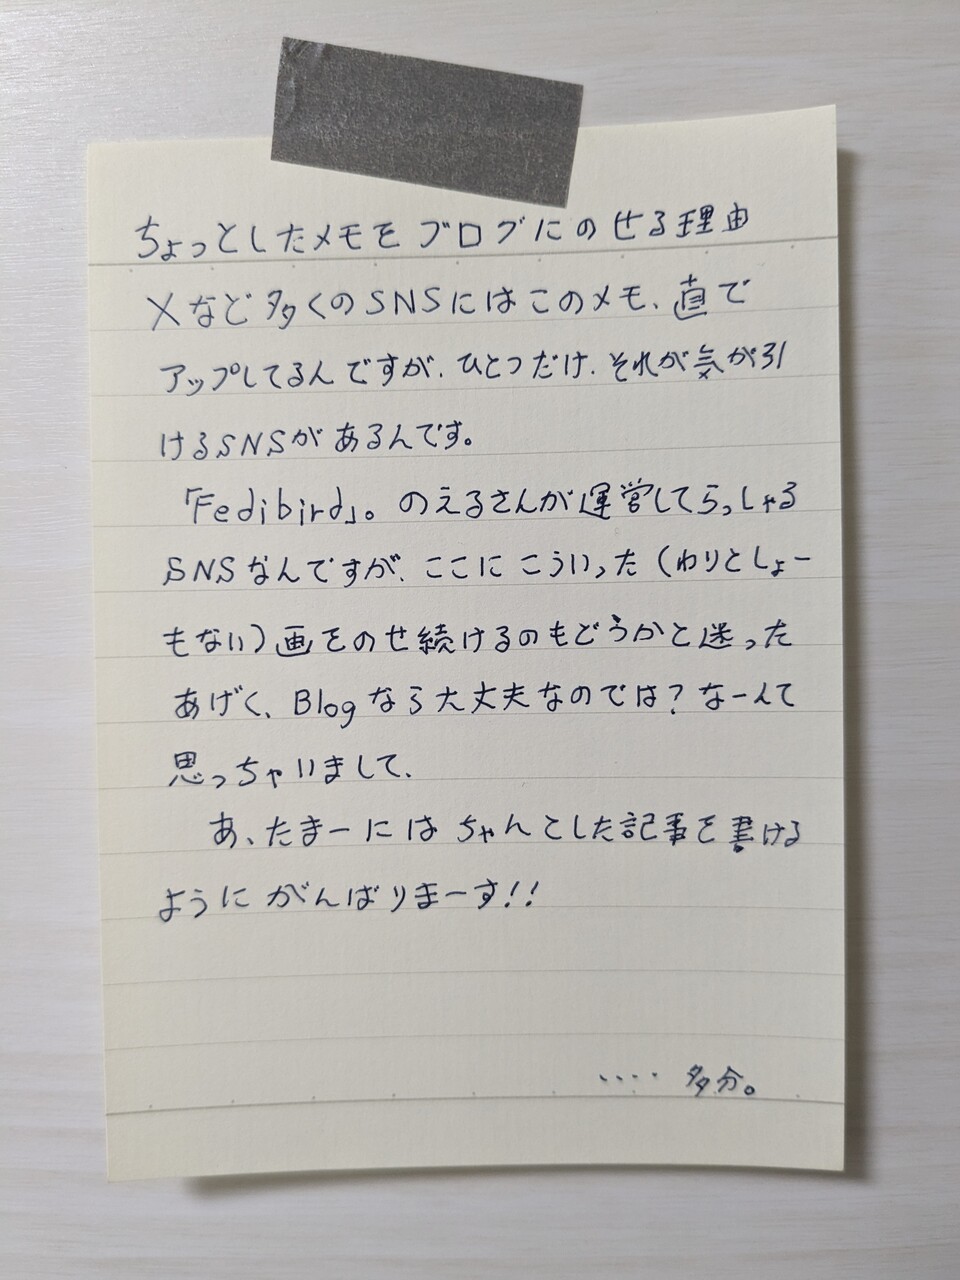 ちょっとしたメモをブログにのせる理由
Xなど多くのSNSにはこのメモ、直で
アップしてるんですが、ひとつだけ、それが気が引
けるSNSがあるんです。
「Fedibird」。のえるさんが運営してらっしゃる
SNSなんですが、ここにこういった(わりとしょー
もない)画をのせ続けるのもどうかと迷った
あげく、Blogなら大丈夫なのでは?なーんて
思っちゃいまして、
あ、たまーにはちゃんとした記事を書ける
ようにがんばりまーす!!
‥‥多分。